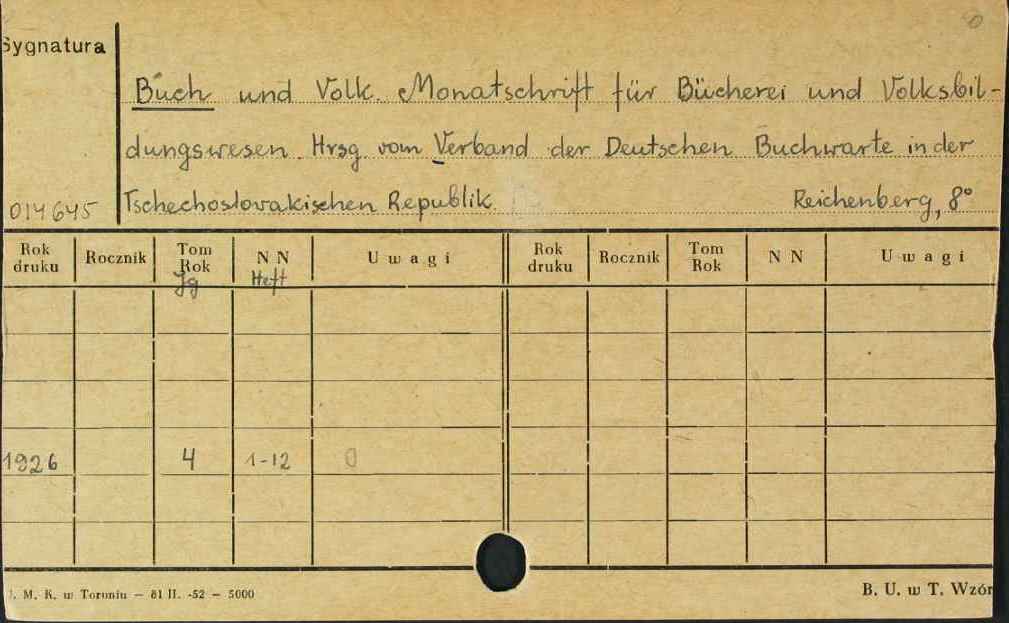 Sygnatura
Buch und Volk. Monatschrift für Bücherei und Volksbil-
dungswesen. Hrsg. vom Verband der Deutschen Buchwarte in der
014645 Tschechoslovakischen Republik Reichenberg, 8°
Rok druku Rocznik Tom Rok N N U w a g i Rok druku Rocznik Tom Rok N N U w a g i
Jg Heft
1926 4 1-12 0
. M. K. w Toruniu — 81 II. -52 — 5000 B. U. w T. Wzór